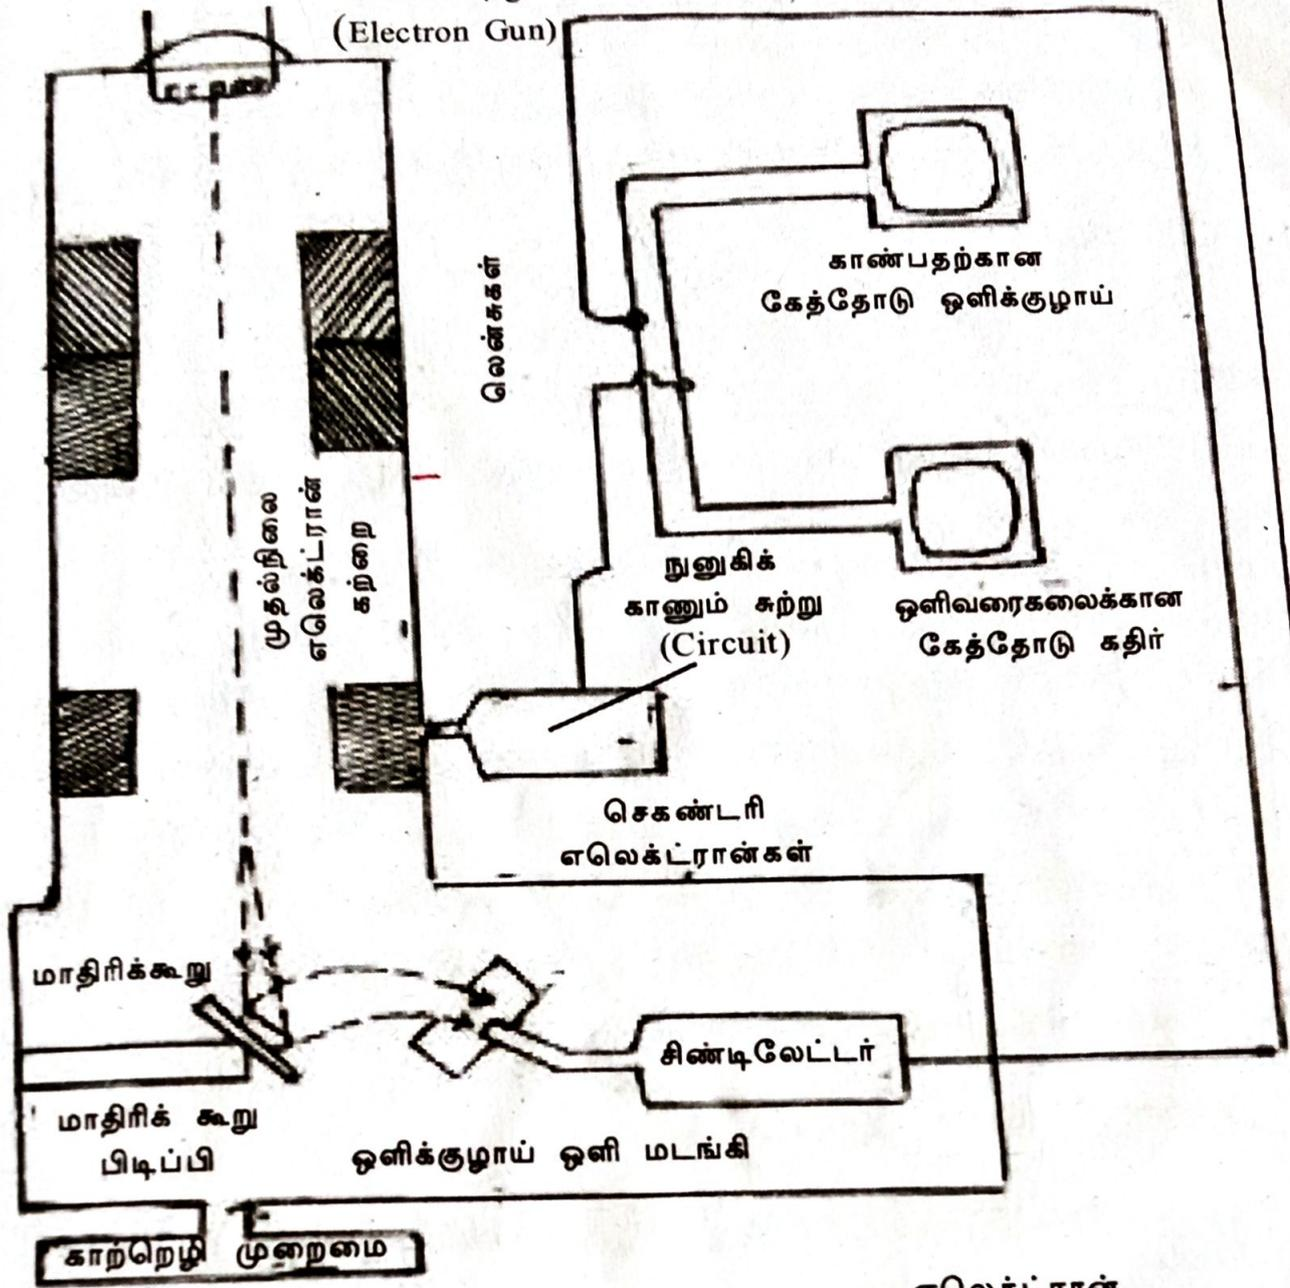 (Electron Gun)
காண்பதற்கான
கேத்தோடு ஒளிக்குழாய்
லென்சுகள்
முதல்நிலை
எலெக்ட்ரான்
கற்றை
நுனுகிக்
காணும் சுற்று
(Circuit)
ஒளிவரைகலைக்கான
கேத்தோடு கதிர்
செகண்டரி
எலெக்ட்ரான்கள்
மாதிரிக்கூறு
சிண்டிலேட்டர்
மாதிரிக் கூறு
பிடிப்பி
ஒளிக்குழாய் ஒளி மடங்கி
காற்றெழி முறைமை